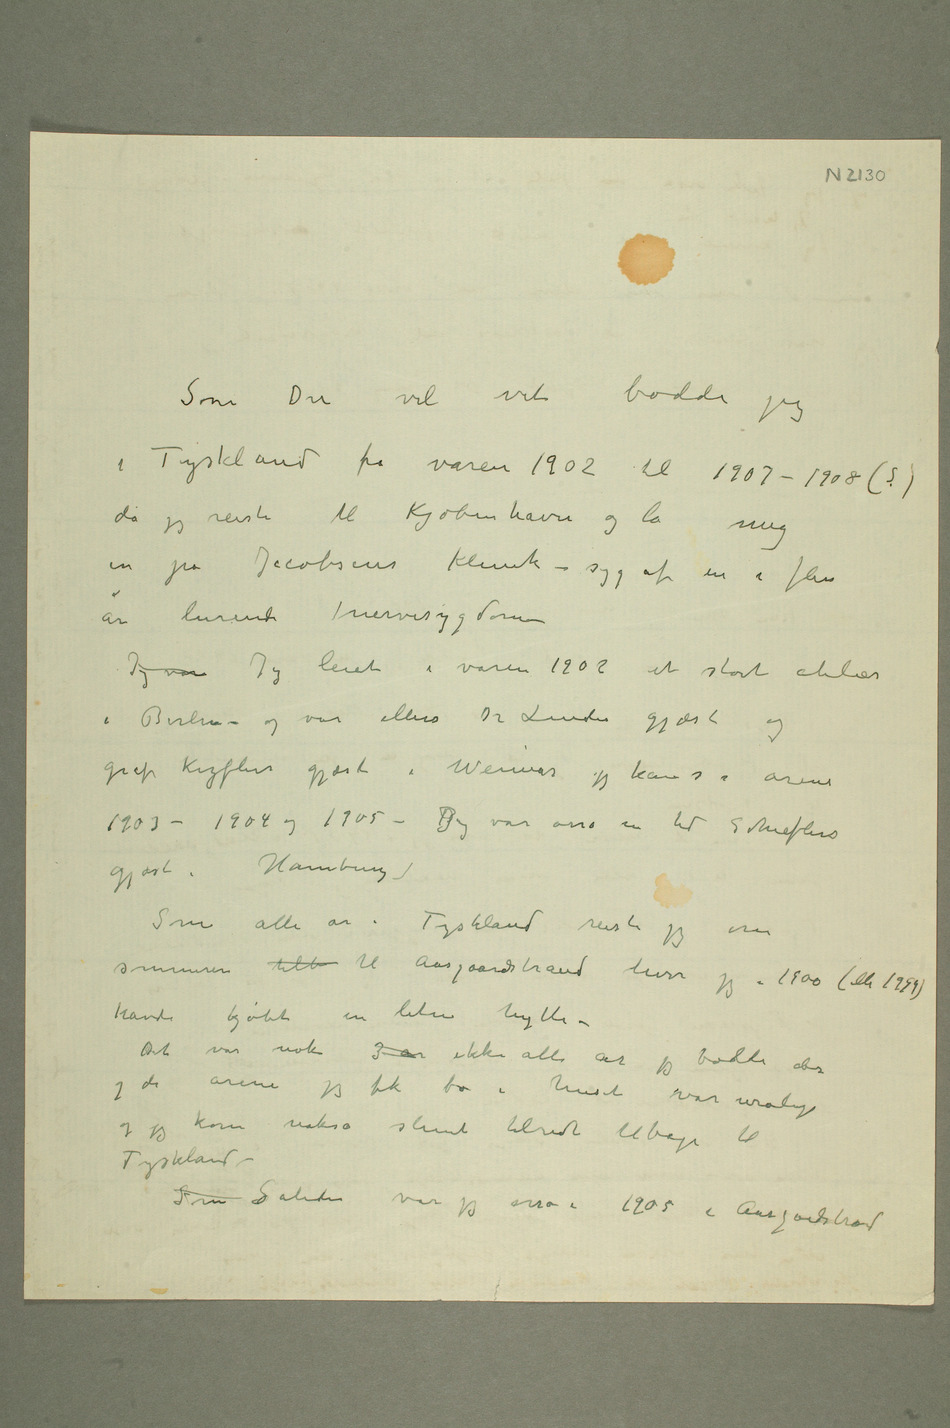 N 2130
Som Du vil vite bodde jeg
i Tyskland fra våren 1902 til 1907 – 1908 (?)
da jeg reiste til Kjøbenhavn og la mig
in på Jacobsens Klinik – syg af en i flere
år lurende nervesygdom
Jeg var Jeg leiet i våren 1902 et stort atelier
i Berlin – og var ellers Dr Lindes gjæst og
graf Kezflers gjæst i Weimar jeg kan s i årene
1903 – 1904 og 1905 – Jeg var osså en tid Schieflers
gjæst i Hamburg)
Som alle år i Tyskland reiste jeg om
sommeren tilb til Aasgaardstrand hvor jeg i 1900 (elle 1999)
havde kjøbt en liten hytte –
Det var nok 3 år ikke alle år jeg bodde der
og de årene jeg fik bo i huset var urolige
og jeg kom nokså slemt tilredt tilbage til
Tyskland –
Som Således var jeg osså i 1905 i Aasgaardstrand